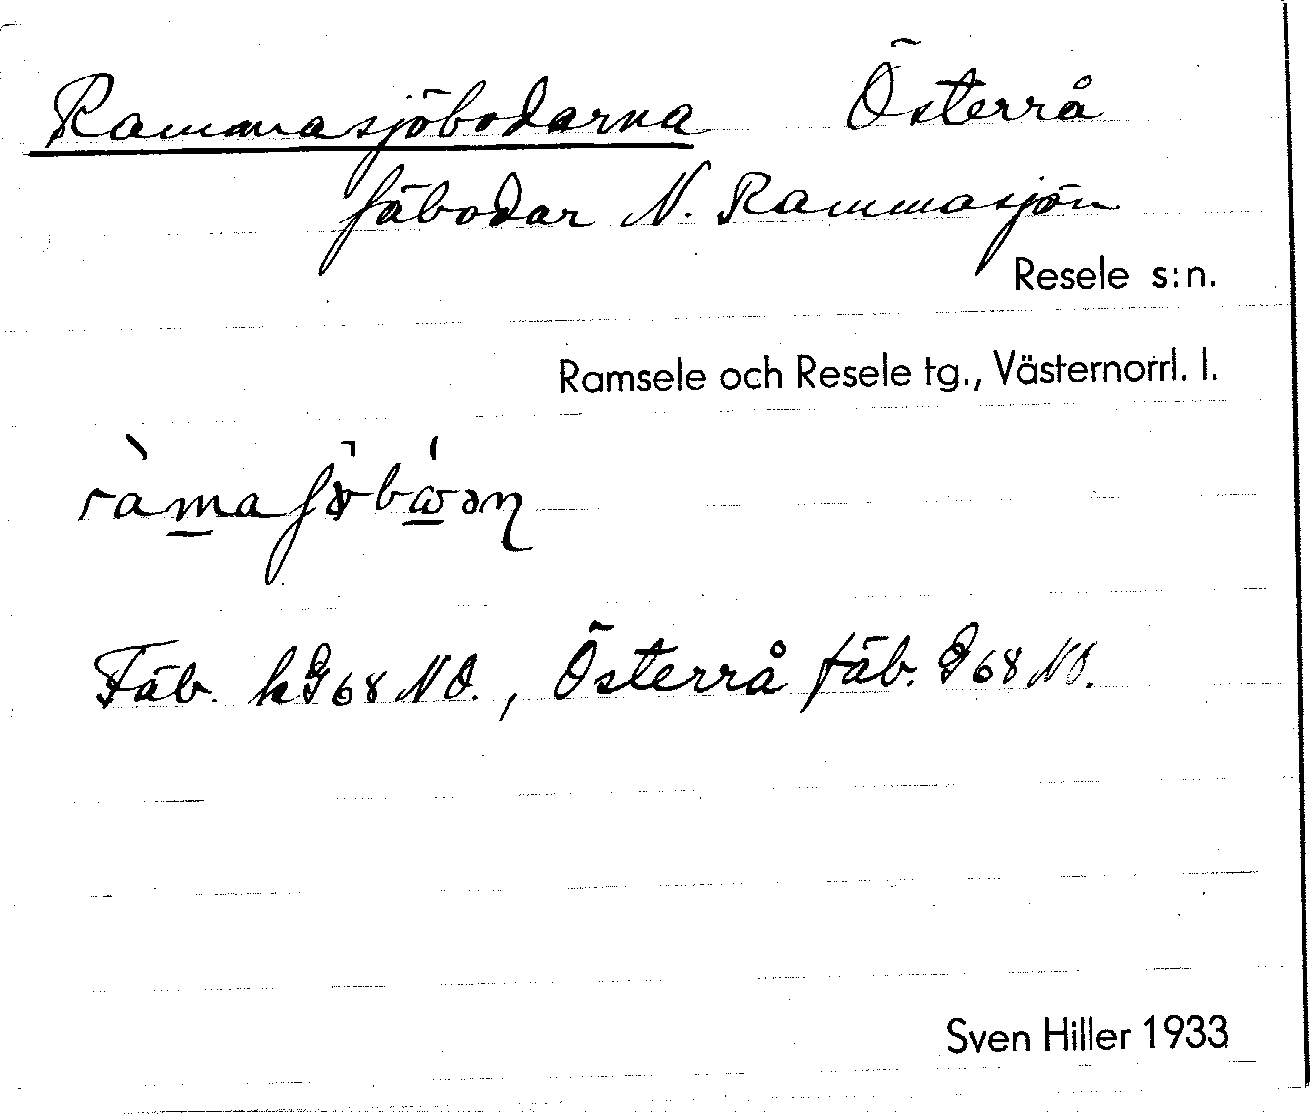 Rammasjöbodarna Österrå
fäbodar N. Rammasjön
Resele s:n.
Ramsele och Resele tg., Västernorrl. l.
Fäb. kG68NO., Österrå fäb. G68NO.
Sven Hiller 1933